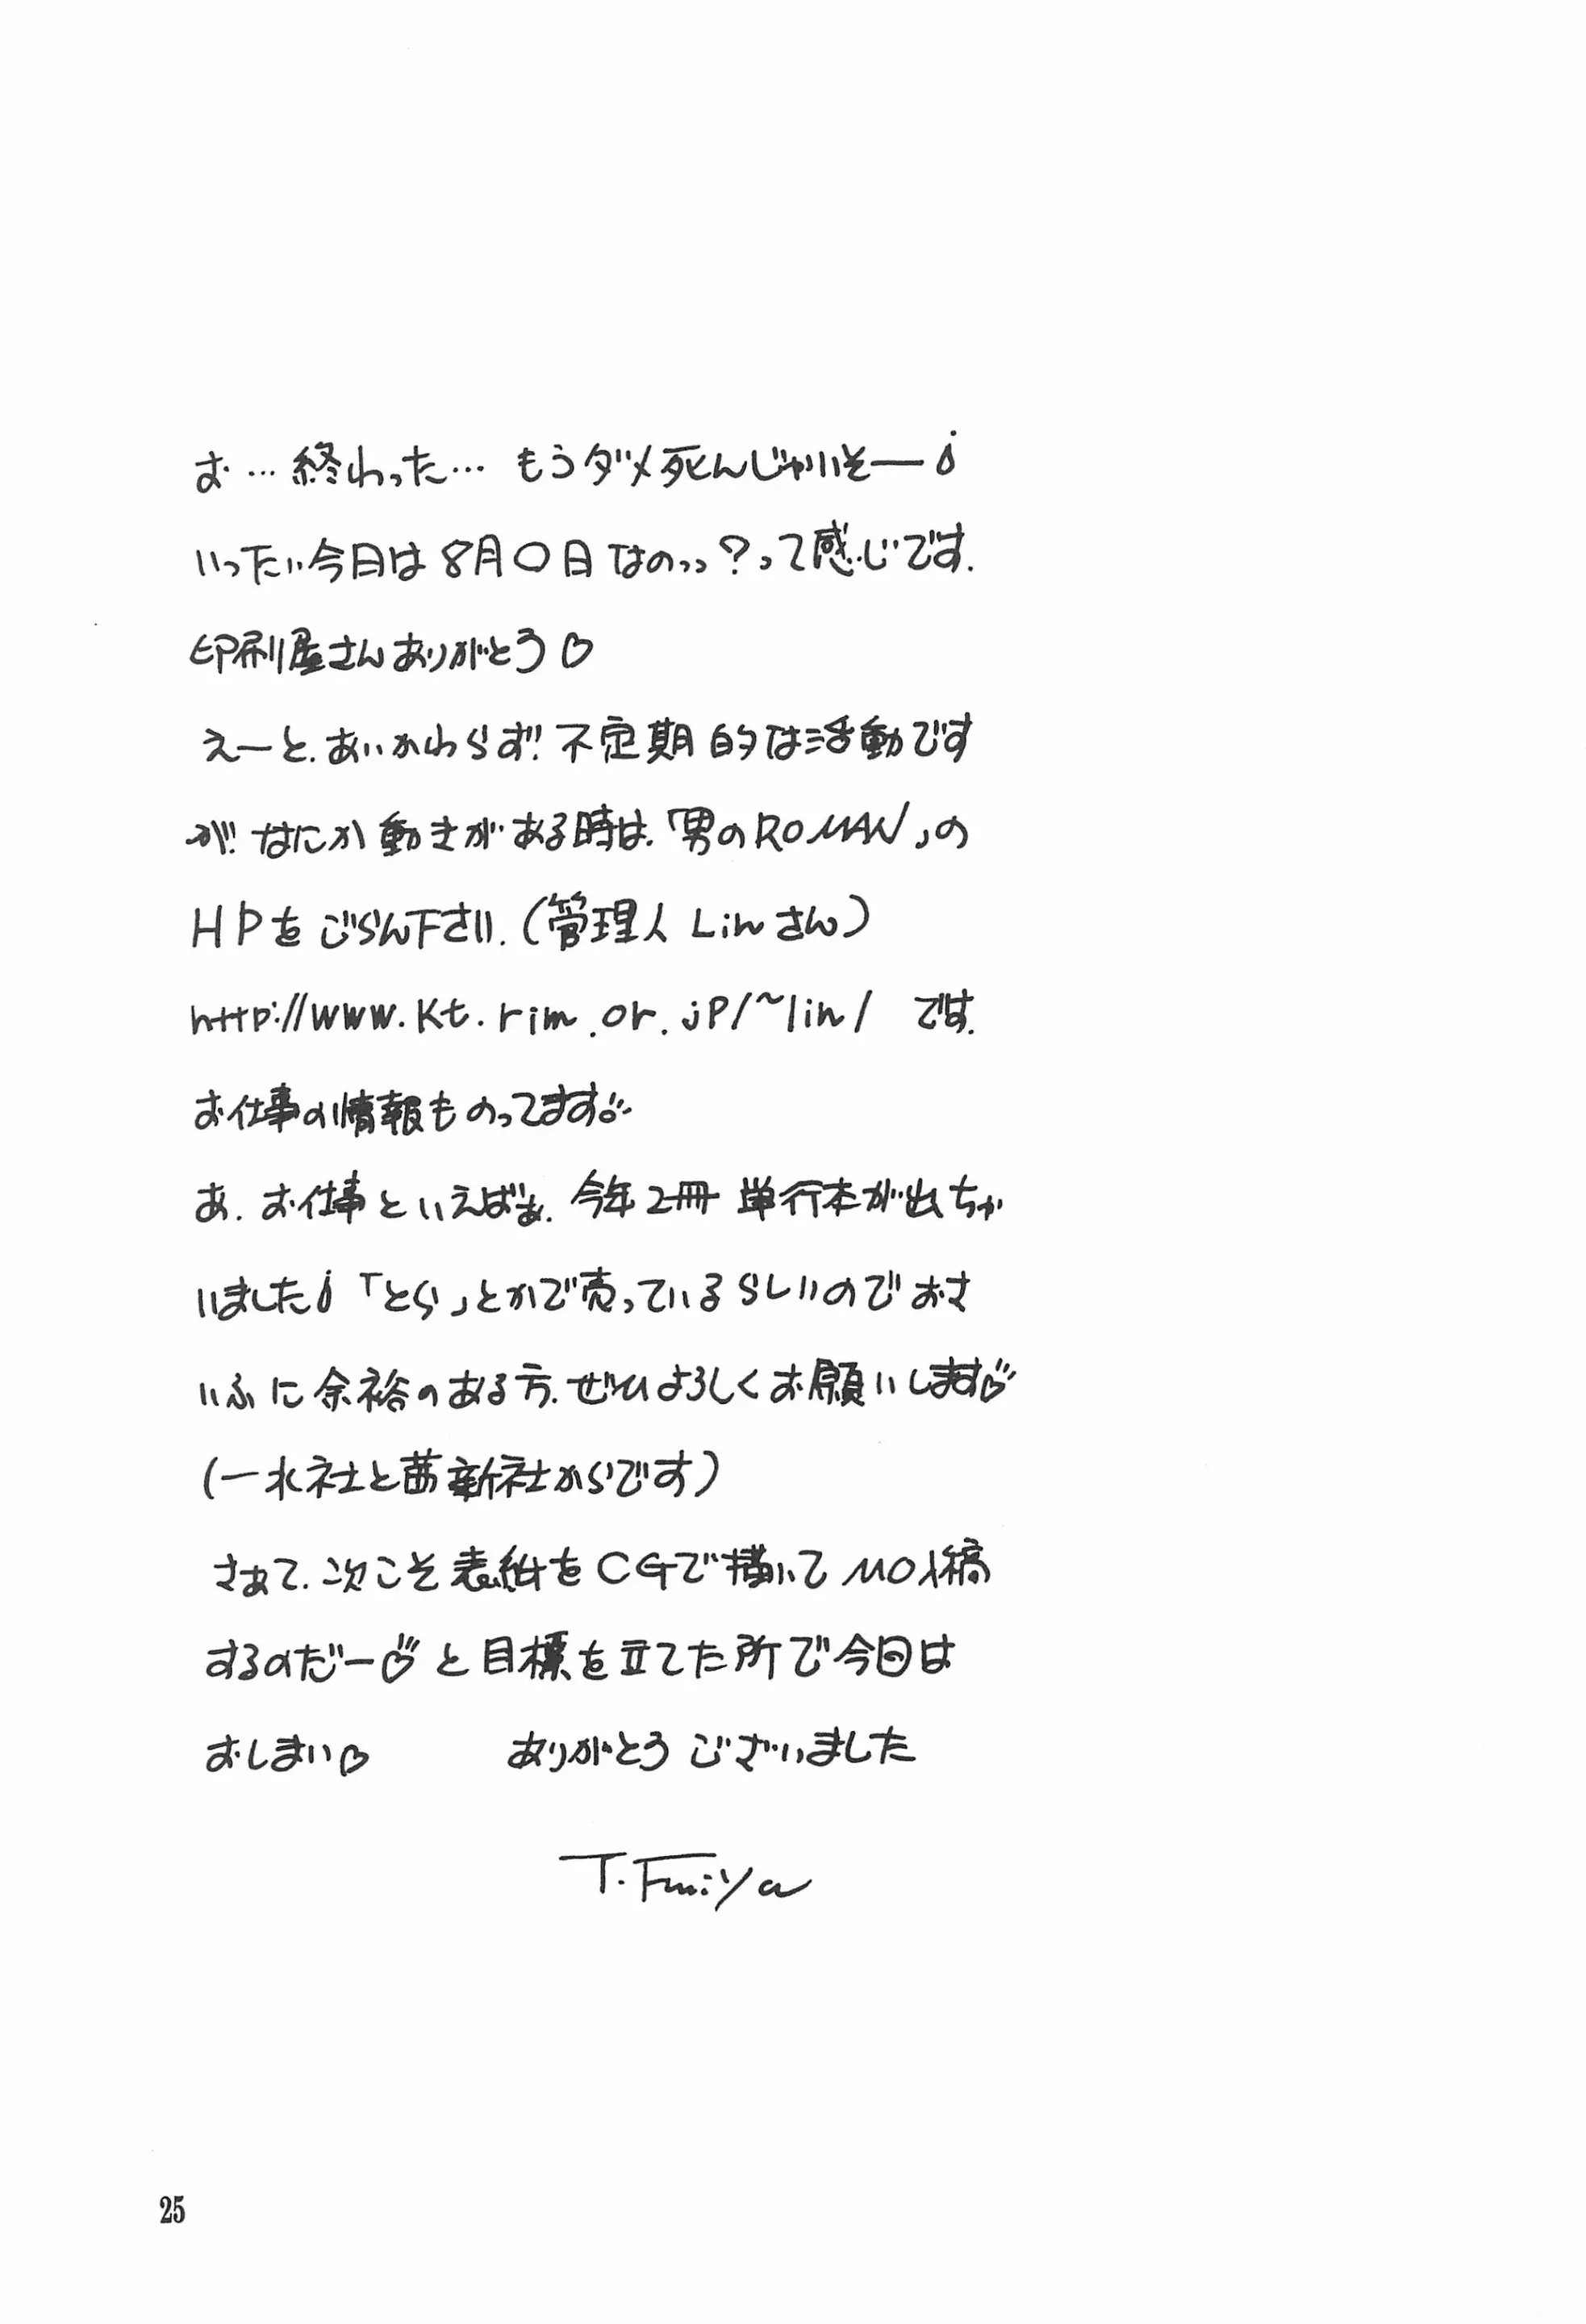 お…終わった… もうダメ死んじゃいそー
いったい今日は8月〇日なのっっ？って感じです.
印刷屋さんありがとう♡
えーと.あいかわらず!!不定期的な活動です
が!!なにか動きがある時は.「男のROMAN」の
HPをごらん下さい.(管理人Linさん)
http://www.kt.rim.or.jp/~lin/ です.
お仕事の情報ものってます
あ.お仕事といえばぁ.今年2冊単行本が出ちゃ
いました「とら」とかで売っているらしいのでおさ
いふに余裕のある方.ぜひよろしくお願いします♡
(一水社と茜新社からです)
さぁて.次こそ表紙をCGで描いてMO入稿
するのだー♡と目標を立てた所で今日は
おしまい♡ ありがとうございました
T.Fujiya
25